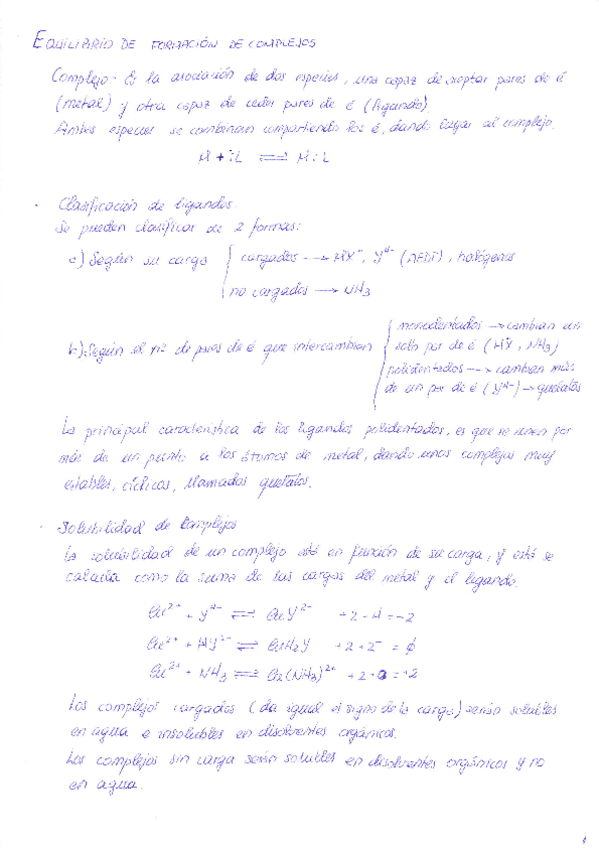 EQUILIBRIO DE FORMACIÓN DE COMPLEJOS
Complejo - Es la asociación de dos especies, una capaz de aceptar pares de é
(metal) y otra capaz de ceder pares de é (ligando).
Ambas especies se combinan compartiendo los é, dando lugar al complejo.
M + :L ⇌ M:L
· Clasificación de ligandos.
Se pueden clasificar de 2 formas:
a) Según su carga { cargados → HX⁻, Y⁴⁻ (AEDT), halógenos
no cargados → NH3
b) Según el nº de pares de é que intercambian { monodentados → cambian un
solo par de é (HX, NH3)
polidentados → cambian más
de un par de é (Y⁴⁻) → quelatos
La principal característica de los ligandos polidentados, es que se unen por
más de un punto a los átomos de metal, dando unos complejos muy
estables, cíclicos, llamados quelatos.
· Solubilidad de Complejos
La solubilidad de un complejo está en función de su carga, y está se
calcula como la suma de las cargas del metal y el ligando.
Cu²⁺ + Y⁴⁻ ⇌ CuY²⁻ +2 - 4 = -2
Cu²⁺ + HY²⁻ ⇌ CuH2Y +2 + 2⁻ = ϕ
Cu²⁺ + NH3 ⇌ Cu(NH3)²⁺ +2 + 0 = +2
Los complejos cargados (da igual el signo de la carga) serán solubles
en agua e insolubles en disolventes orgánicos.
Los complejos sin carga serán solubles en disolventes orgánicos y no
en agua.
1